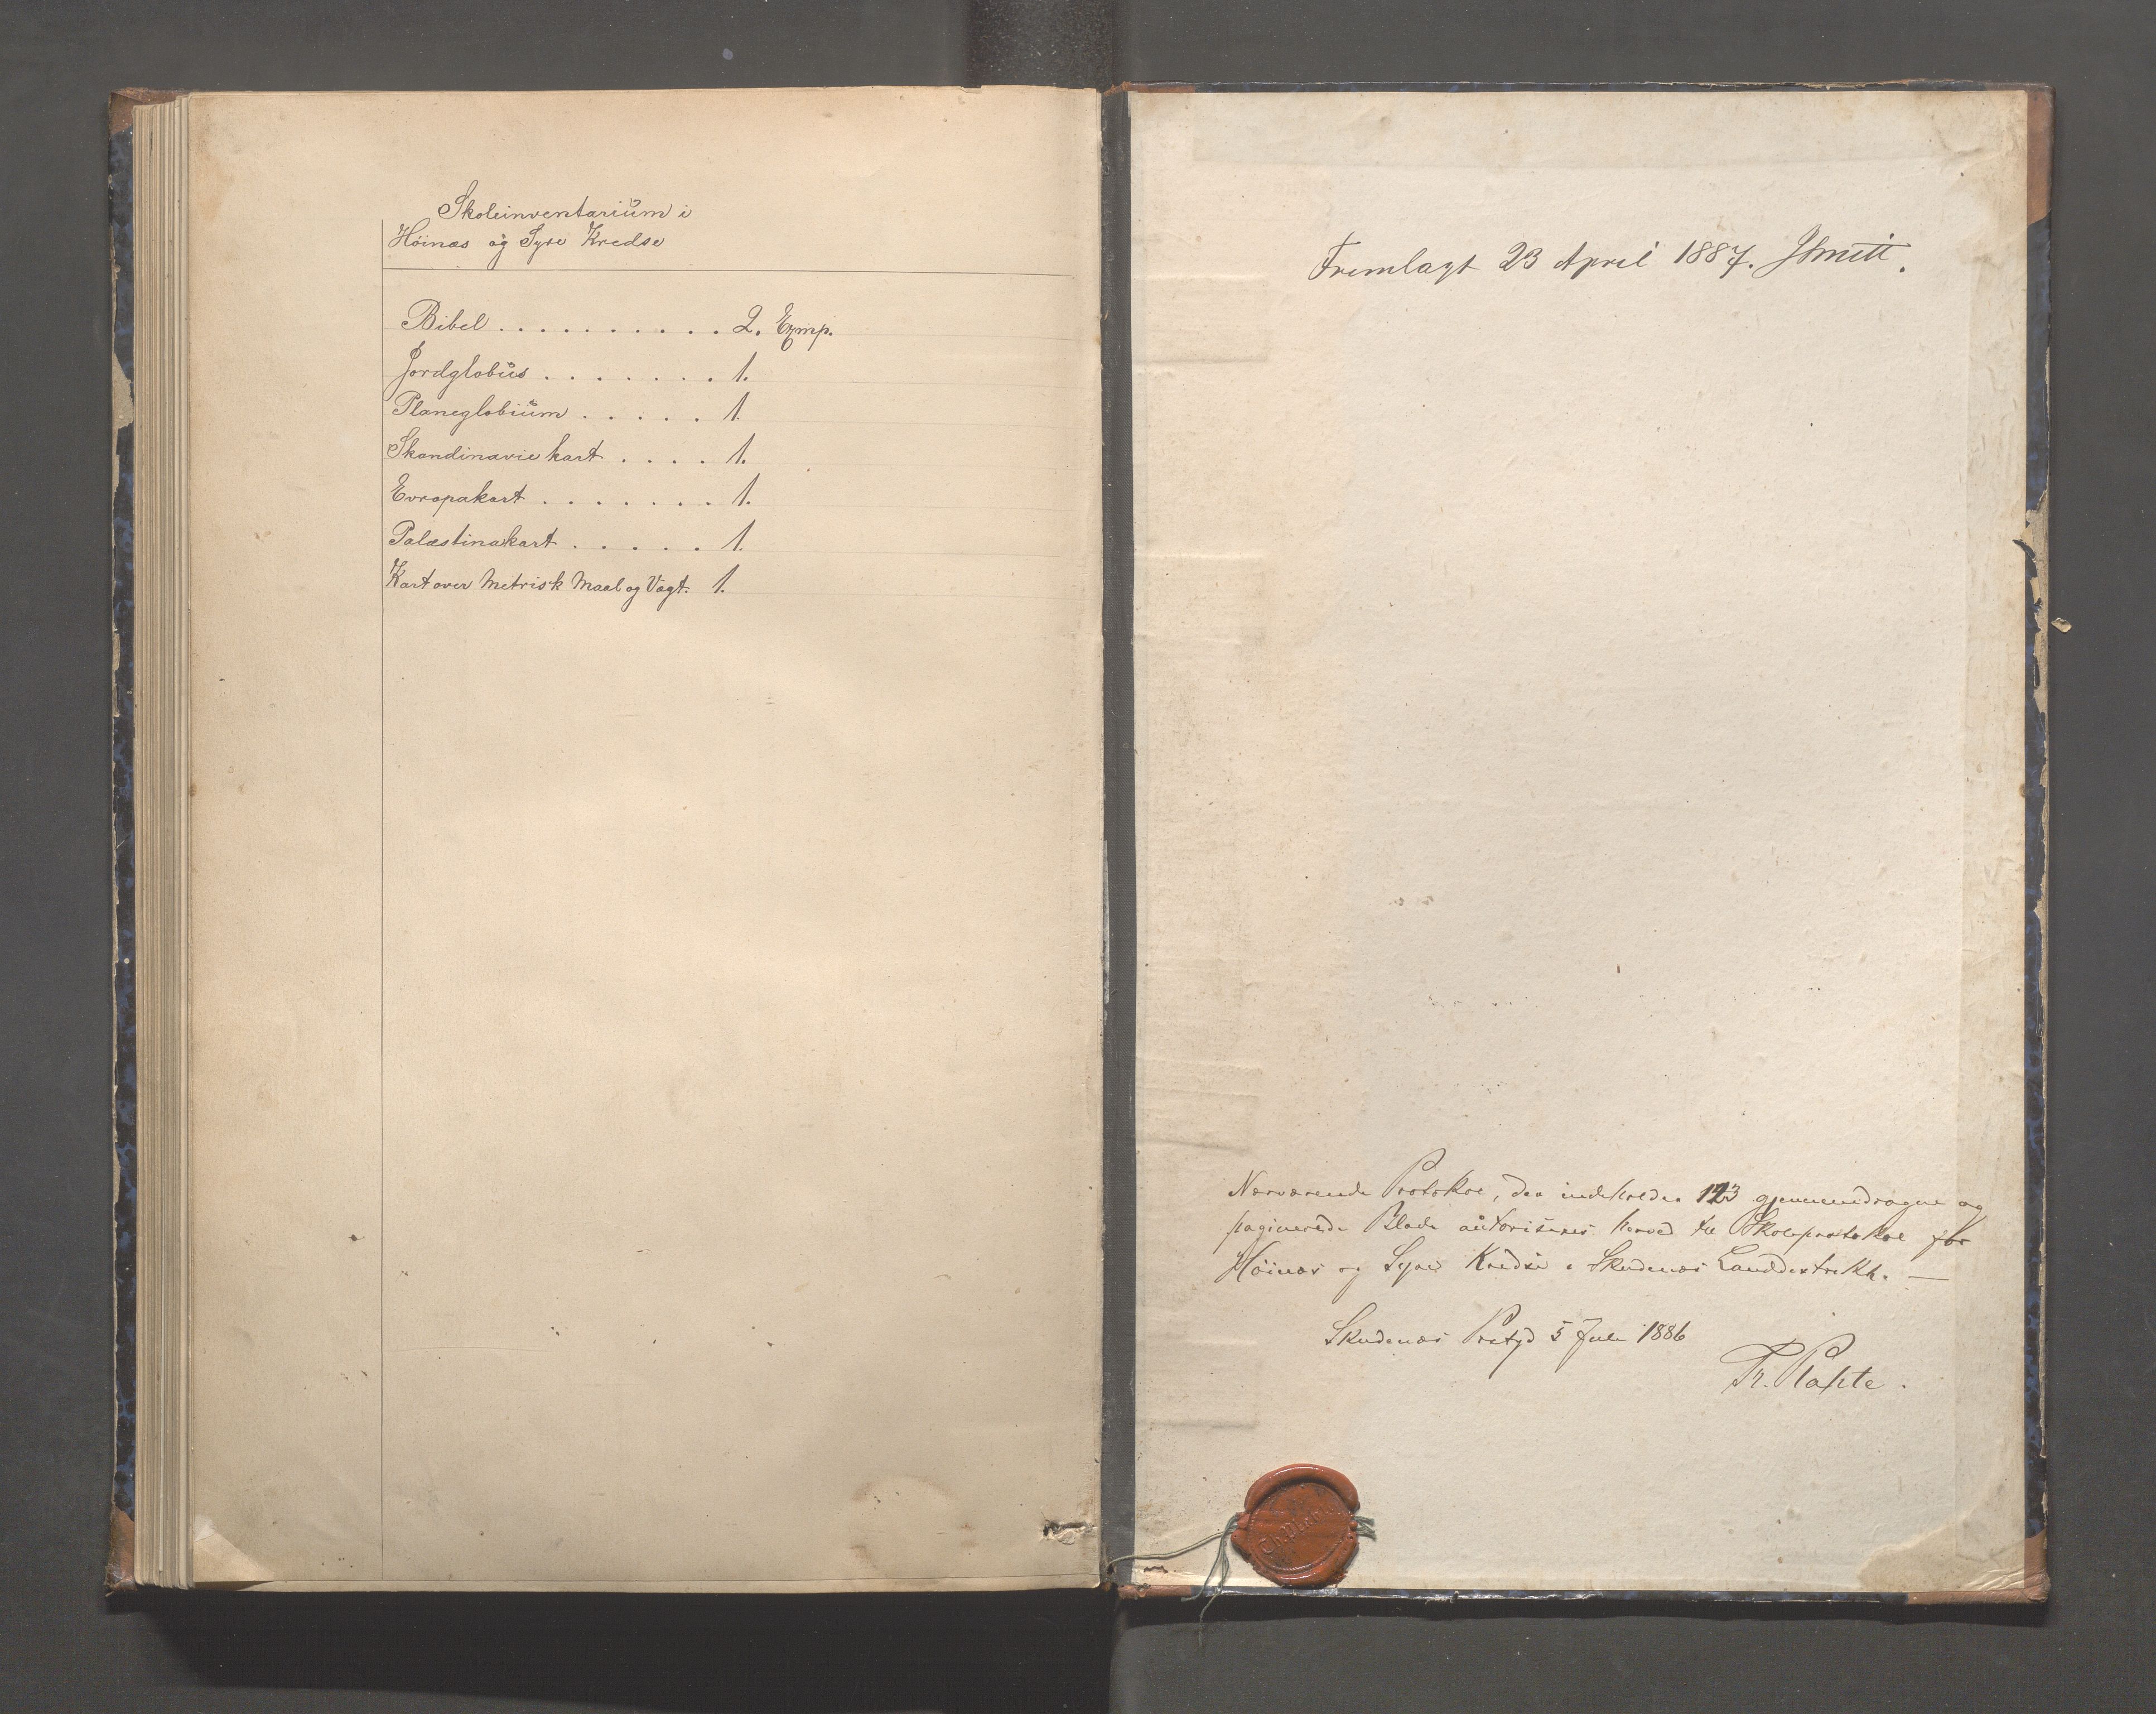 Skoleinventarium i
Höinæs og Syre Kredse
Bibel . . . . . . . . . . 2. Exmp.
Jordglobus . . . . . . . 1.
Planeglobium . . . . . 1.
Skandinavie kart . . . . 1.
Evropakart . . . . . . . 1.
Palæstinakart . . . . . 1.
Kart over Metrisk Maal og Vægt. 1.
Fremlagt 23 April 1887.
Nærværende Protokol, der indeholder 123 gjennemdragne og
paginerede Blade autoriseres herved til Skoleprotokol for
Höinæs og Syre Kredse i Skudenæs Landdistrikt. —
Skudenæs Prstgd 5 Juli 1886